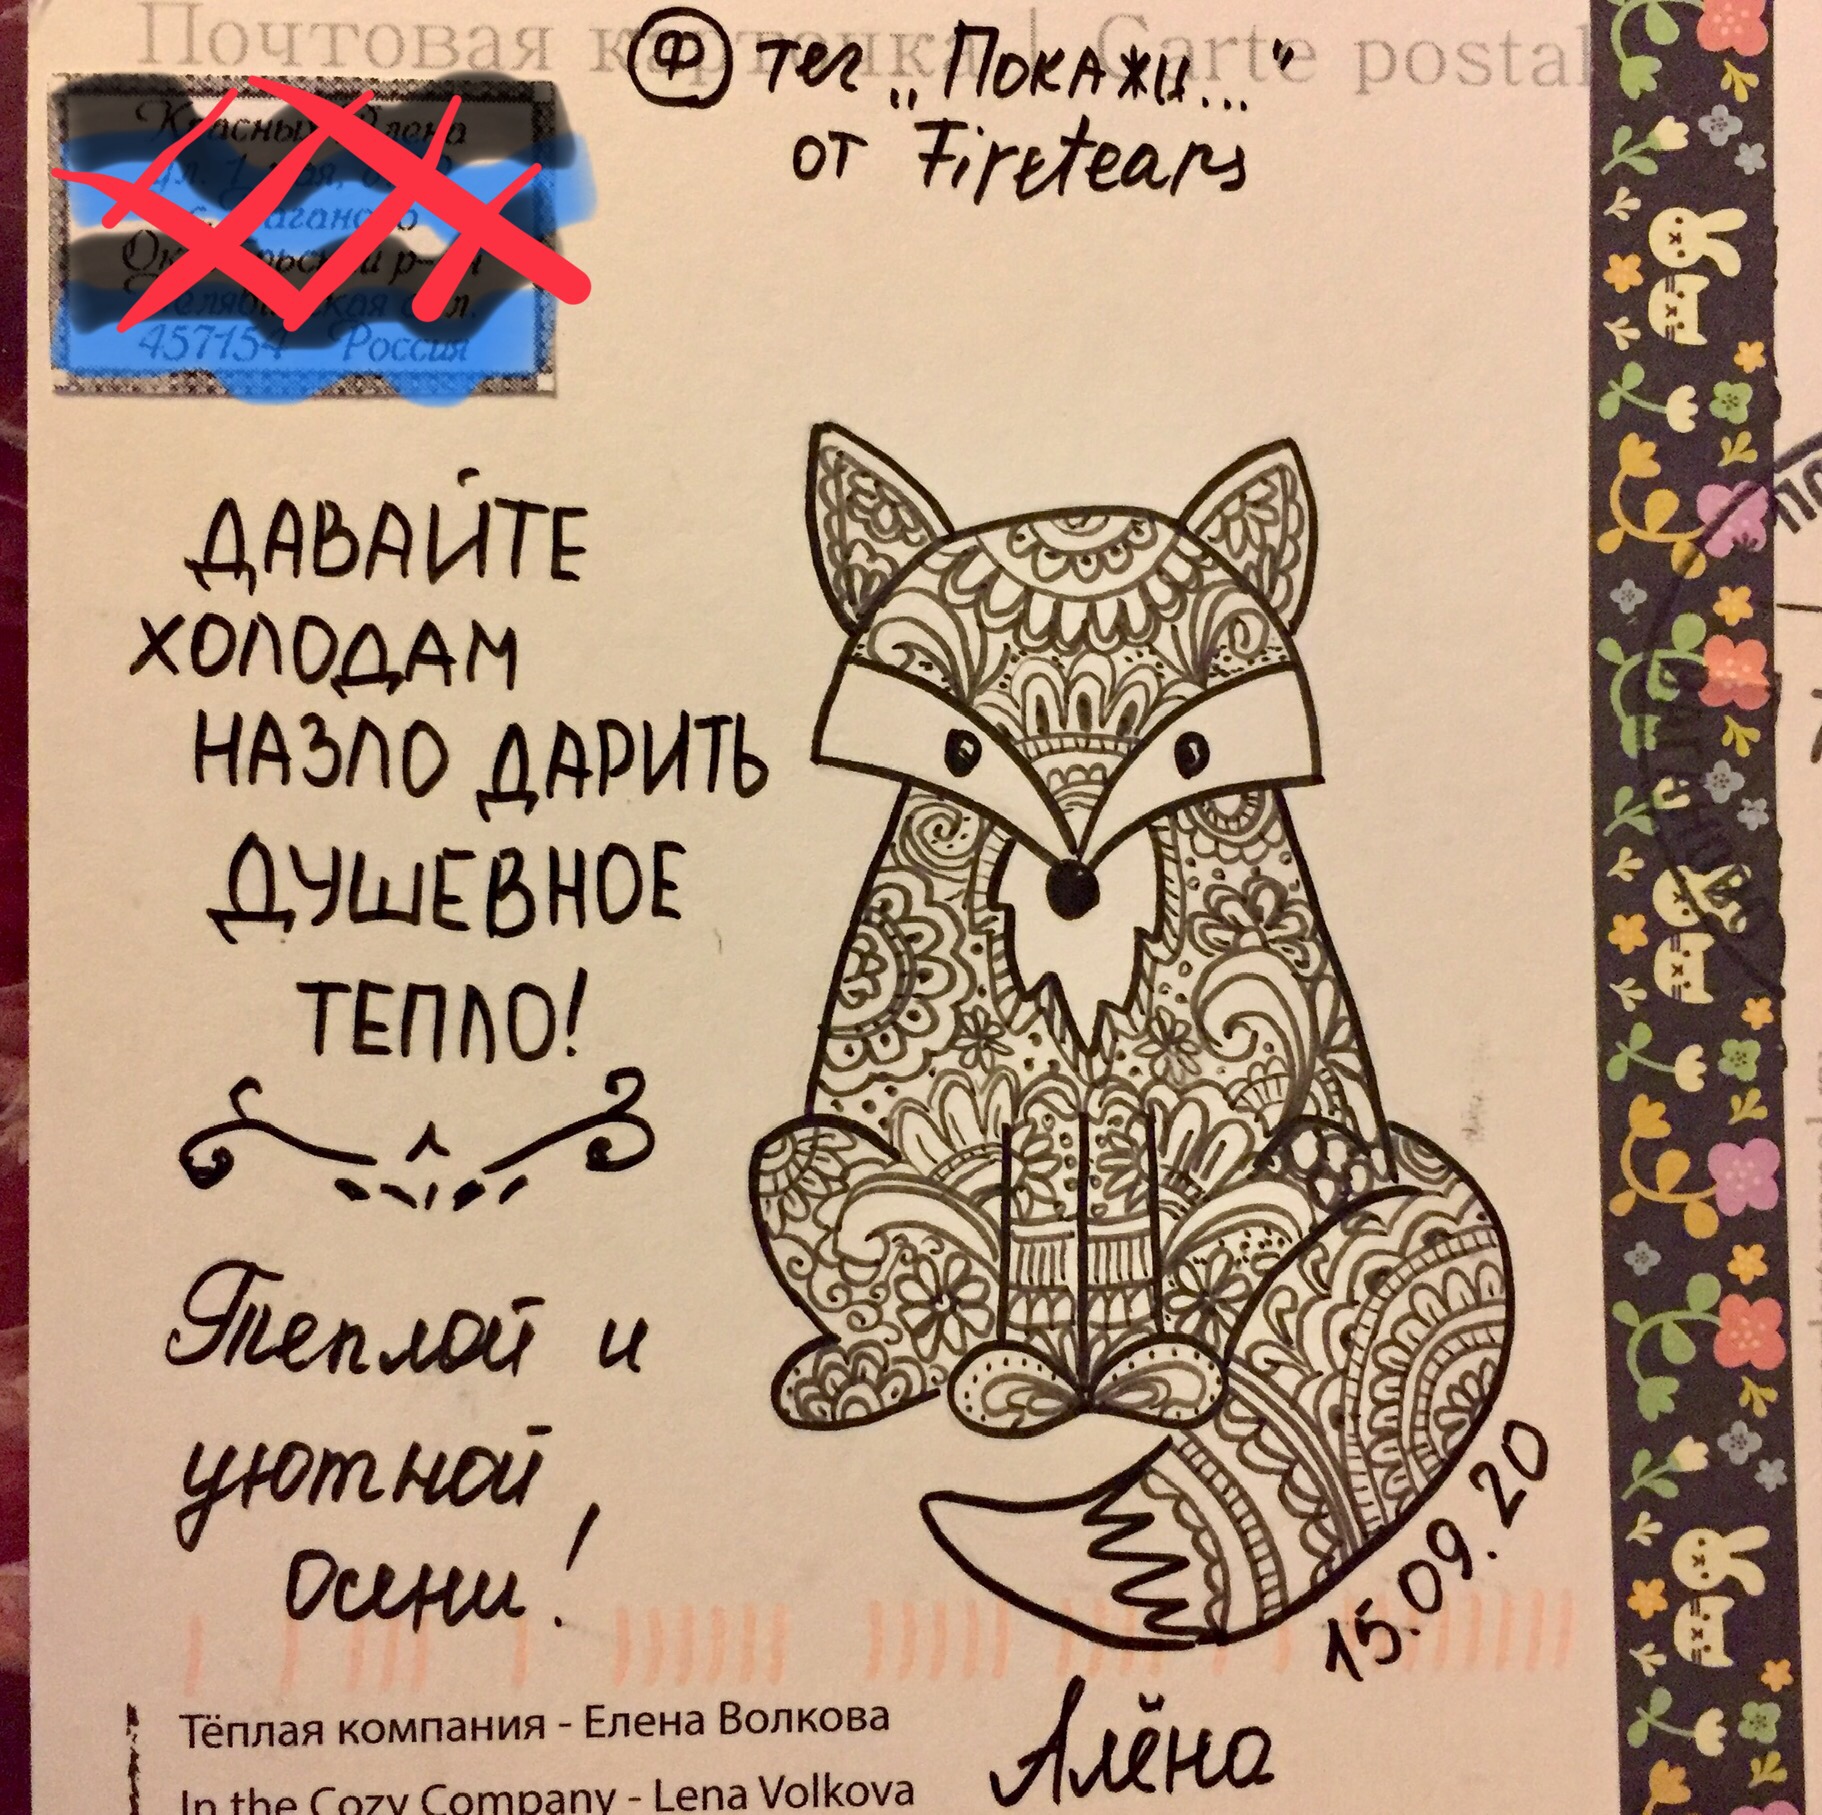 Почтовая карточка | Carte postal
Ф тег „Покажи..."
от Firetears
ДАВАЙТЕ
ХОЛОДАМ
НАЗЛО ДАРИТЬ
ДУШЕВНОЕ
ТЕПЛО!
Теплой и
уютной
осени!
15.09.20
Алёна
Тёплая компания - Елена Волкова
In the Cozy Company - Lena Volkova